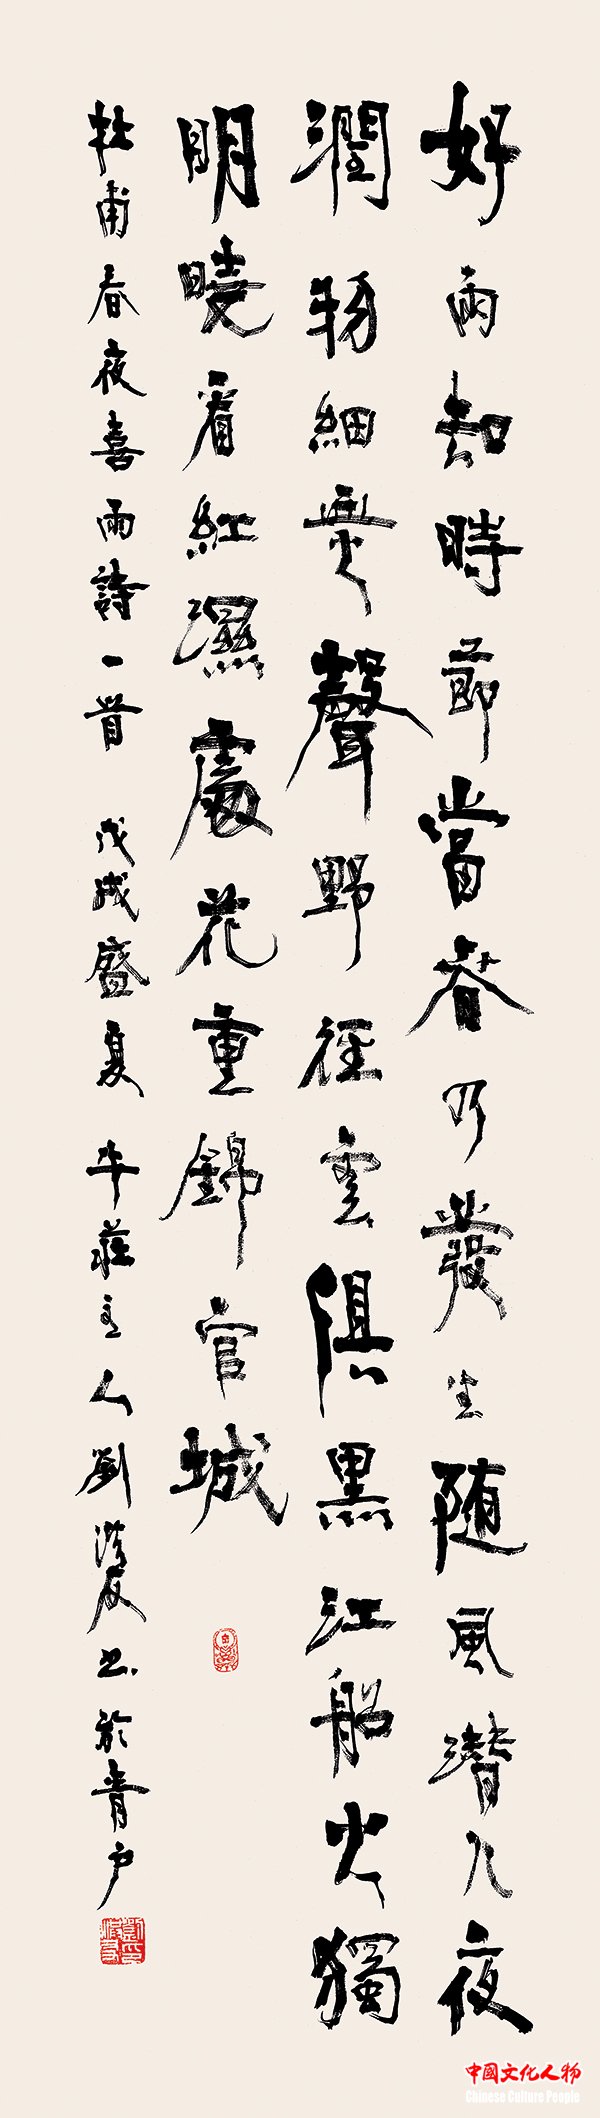 好雨知時節當春乃發生随風潜入夜
潤物細無聲野徑雲俱黑江船火獨
明曉看紅濕處花重錦官城
杜甫春夜喜雨詩一首 戊戌盛夏 牛莊主人劉洪友書於青戶
中國文化人物
Chinese Culture People